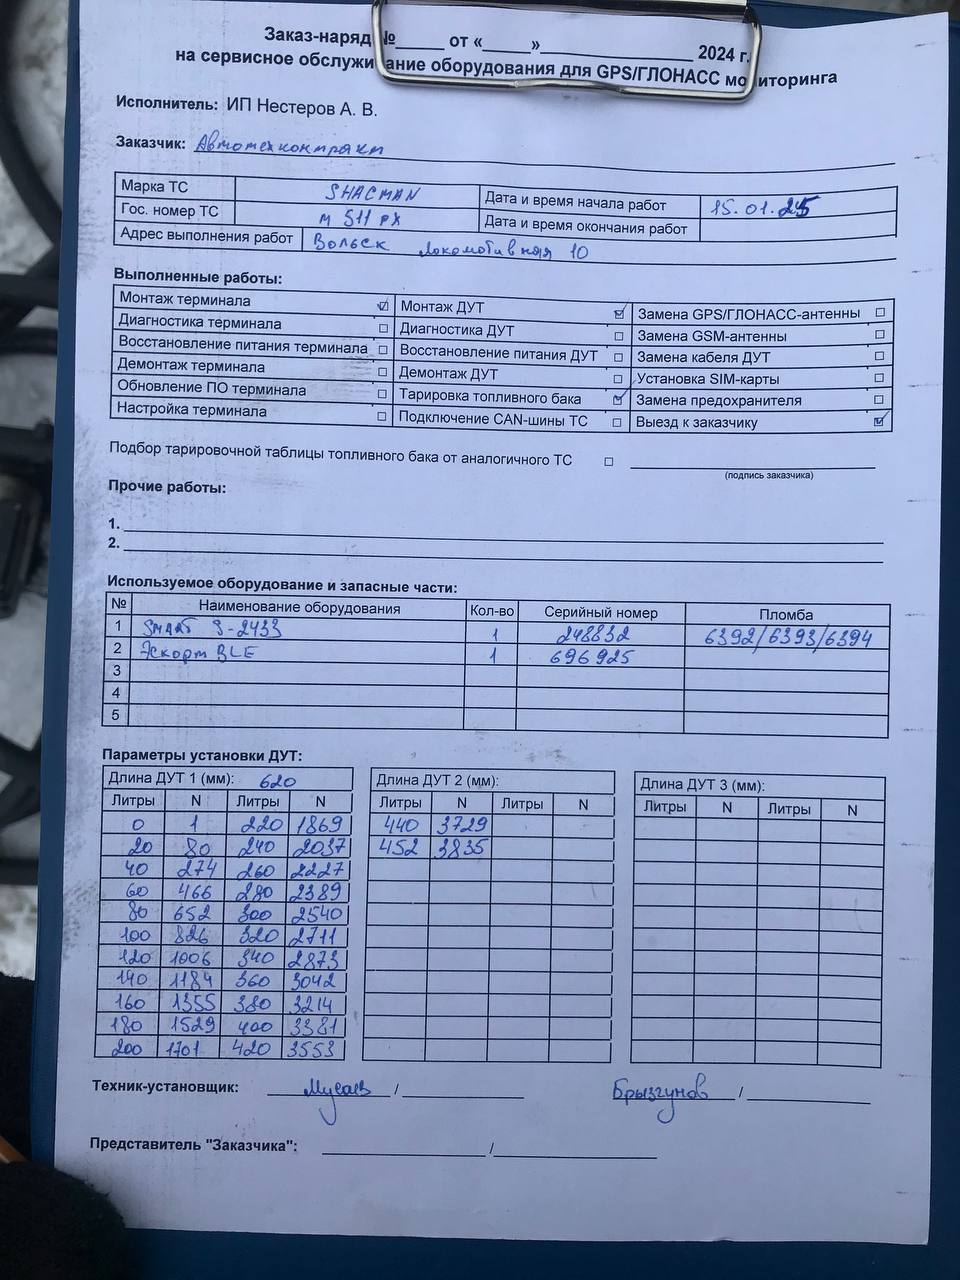 Заказ-наряд №_____ от «_____»________________ 2024 г.
на сервисное обслуживание оборудования для GPS/ГЛОНАСС мониторинга
Исполнитель: ИП Нестеров А. В.
Заказчик: Автотехконтракт
Марка ТС SHACMAN Дата и время начала работ 15.01.25
Гос. номер ТС м 511 рх Дата и время окончания работ
Адрес выполнения работ Вольск Локомотивная 10
Выполненные работы:
Монтаж терминала ☑ Монтаж ДУТ ☑ Замена GPS/ГЛОНАСС-антенны ☐
Диагностика терминала ☐ Диагностика ДУТ ☐ Замена GSM-антенны ☐
Восстановление питания терминала ☐ Восстановление питания ДУТ ☐ Замена кабеля ДУТ ☐
Демонтаж терминала ☐ Демонтаж ДУТ ☐ Установка SIM-карты ☐
Обновление ПО терминала ☐ Тарировка топливного бака ☑ Замена предохранителя ☐
Настройка терминала ☐ Подключение CAN-шины ТС ☐ Выезд к заказчику ☑
Подбор тарировочной таблицы топливного бака от аналогичного ТС ☐
(подпись заказчика)
Прочие работы:
1.
2.
Используемое оборудование и запасные части:
№ Наименование оборудования Кол-во Серийный номер Пломба
1 SMART S-2433 1 248832 6392/6393/6394
2 Эскорт BLE 1 696925
3
4
5
Параметры установки ДУТ:
Длина ДУТ 1 (мм): 620 Длина ДУТ 2 (мм): Длина ДУТ 3 (мм):
Литры N Литры N Литры N Литры N Литры N Литры N
0 1 220 1869 440 3729
20 80 240 2037 452 3835
40 274 260 2227
60 466 280 2389
80 652 300 2540
100 826 320 2711
120 1006 340 2873
140 1184 360 3042
160 1355 380 3214
180 1529 400 3381
200 1701 420 3553
Техник-установщик: Мусаев / Брызгунов /
Представитель "Заказчика": /